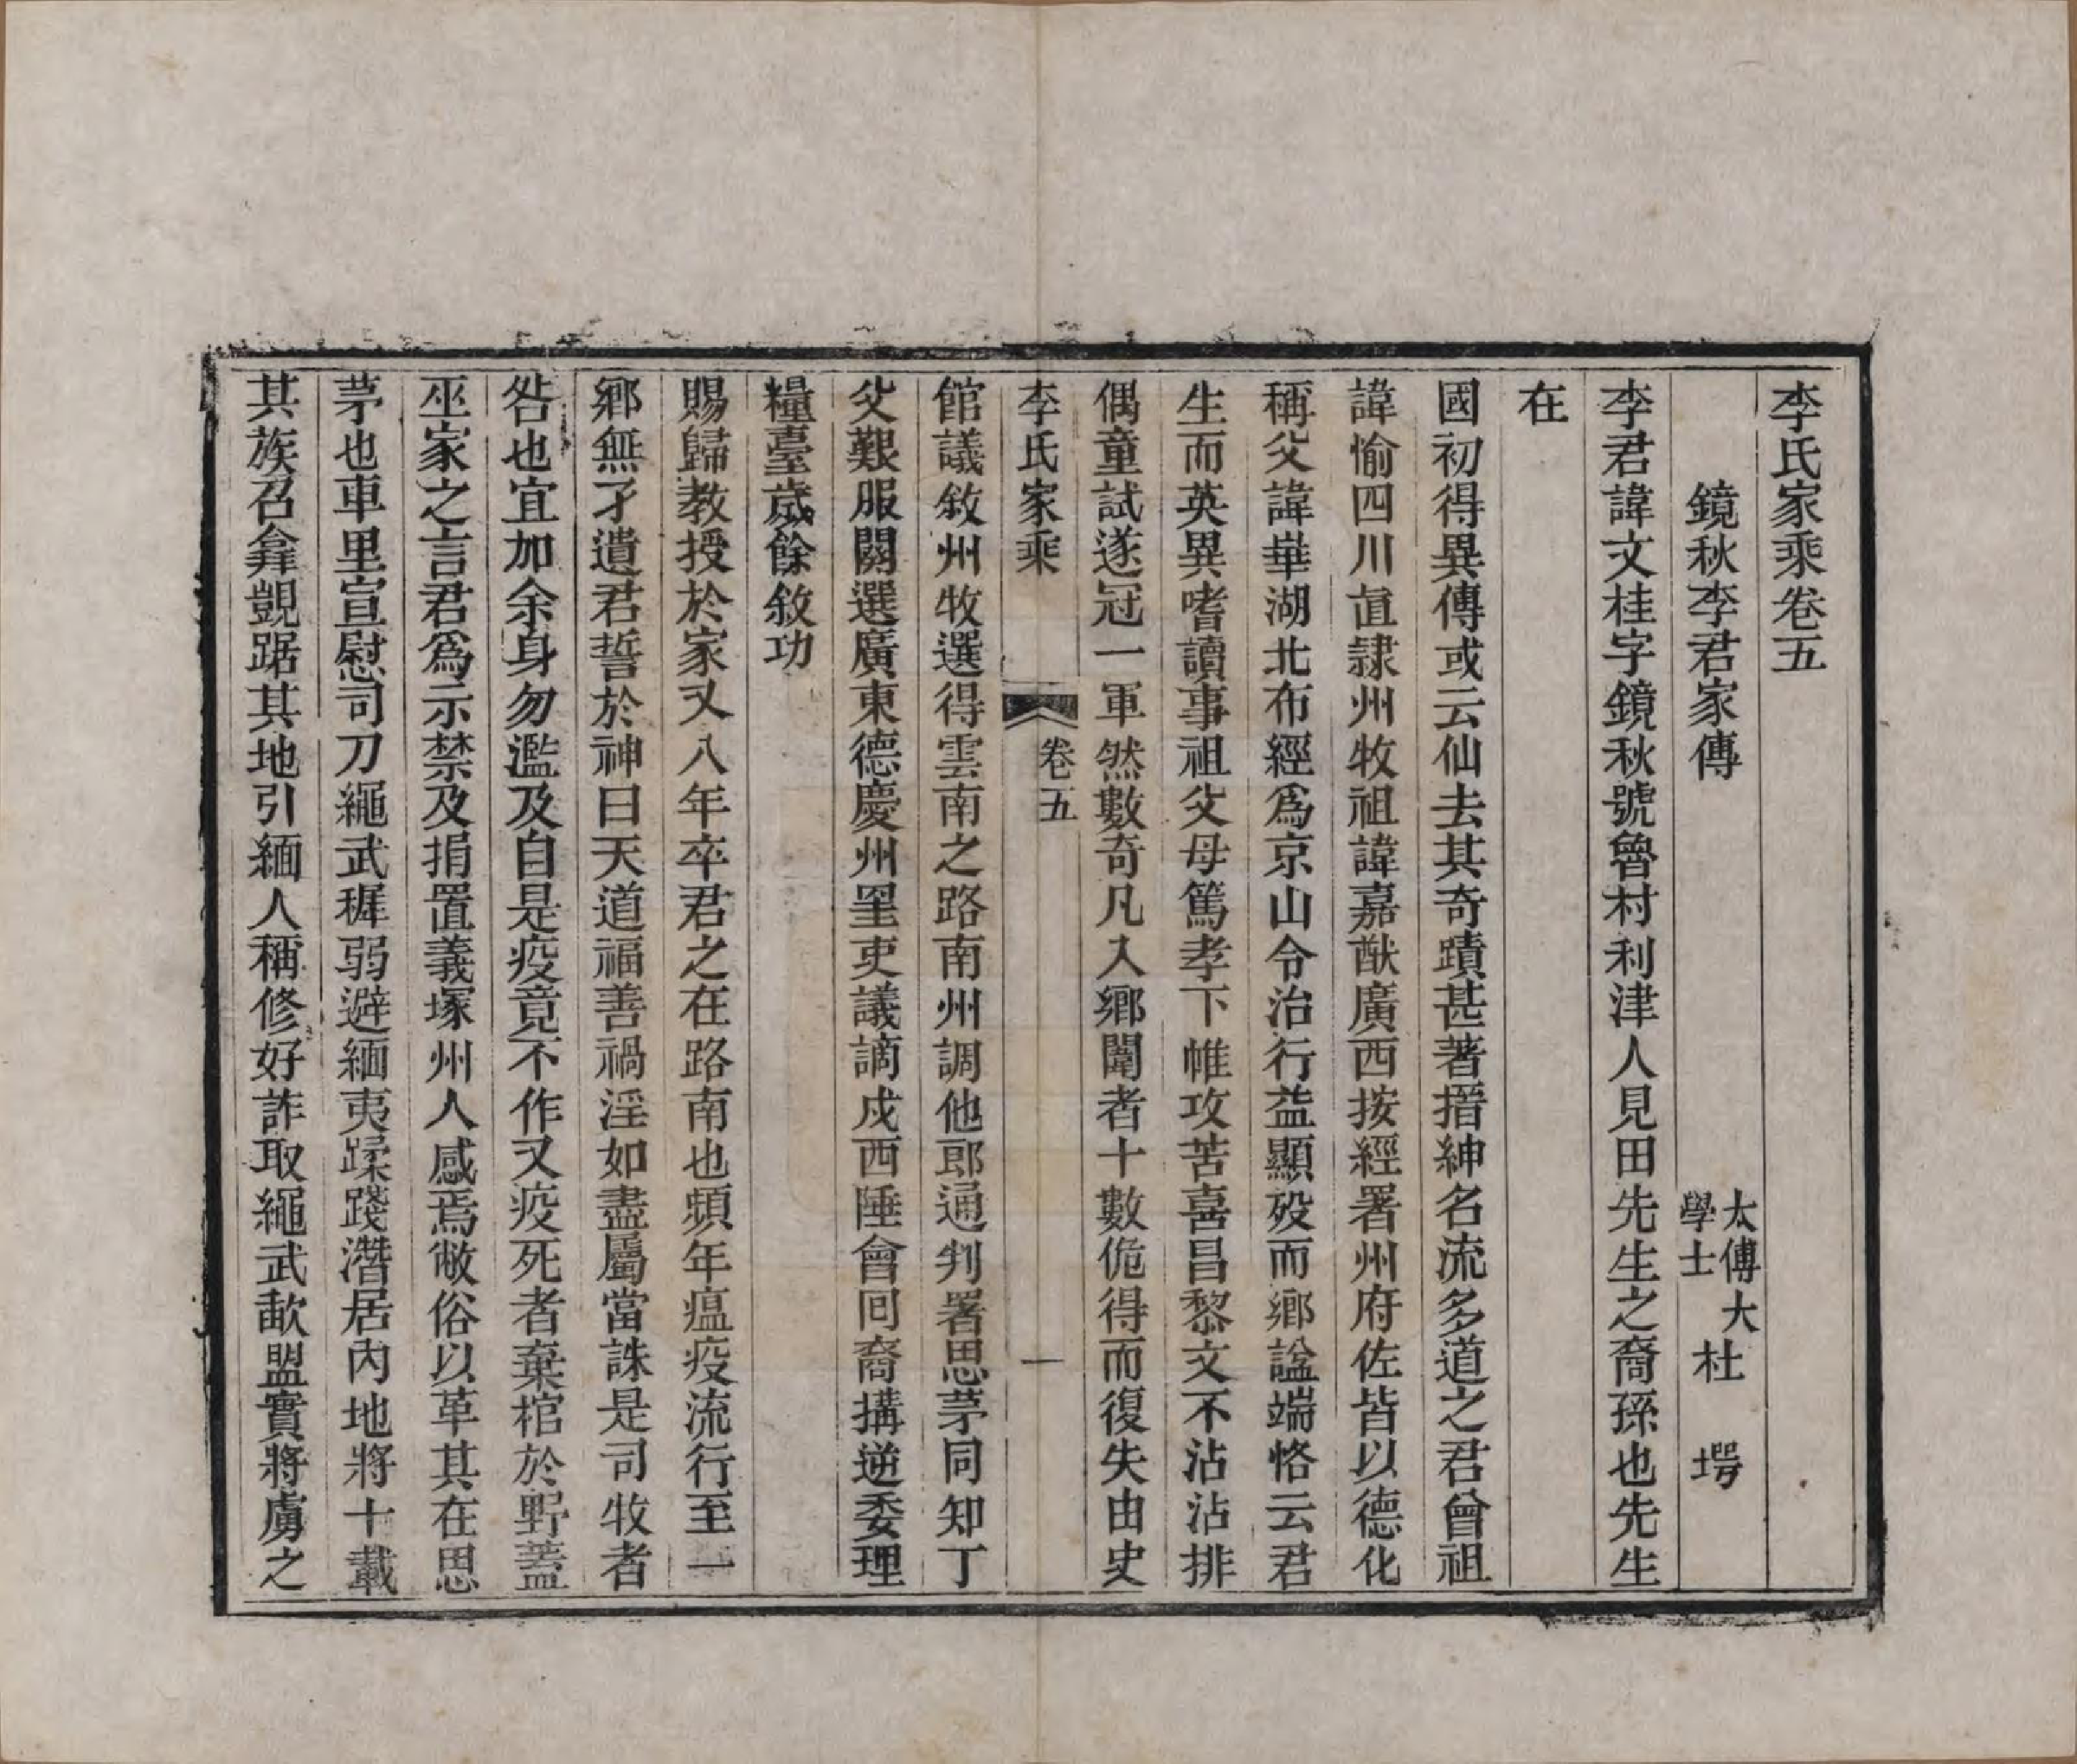 李氏家乘卷五
鏡秋李君家傳
太傅大
學士
杜　堮
李君諱文桂字鏡秋號魯村利津人見田先生之裔孫也先生
在
國初得異傳或云仙去其奇蹟甚著搢紳名流多道之君曾祖
諱愉四川直隸州牧祖諱嘉猷廣西按經署州府佐皆以德化
稱父諱華湖北布經爲京山令治行益顯歿而鄉諡端恪云君
生而英異嗜讀事祖父母篤孝下帷攻苦喜昌黎文不沾沾排
偶童試遂冠一軍然數奇凡入鄉闈者十數佹得而復失由史
李氏家乘　卷五　一
館議敘州牧選得雲南之路南州調他郎通判署思茅同知丁
父艱服闋選廣東德慶州罣吏議謫戍西陲會回裔搆逆委理
糧臺歲餘敘功
賜歸教授於家又八年卒君之在路南也頻年瘟疫流行至一
鄉無孑遺君誓於神曰天道福善禍淫如盡屬當誅是司牧者
咎也宜加余身勿濫及自是疫竟不作又疫死者棄棺於野蓋
巫家之言君爲示禁及捐置義塚州人感焉敝俗以革其在思
茅也車里宣慰司刀繩武穉弱避緬夷蹂踐潛居內地將十載
其族召彝覬踞其地引緬人稱修好詐取繩武歃盟實將虜之